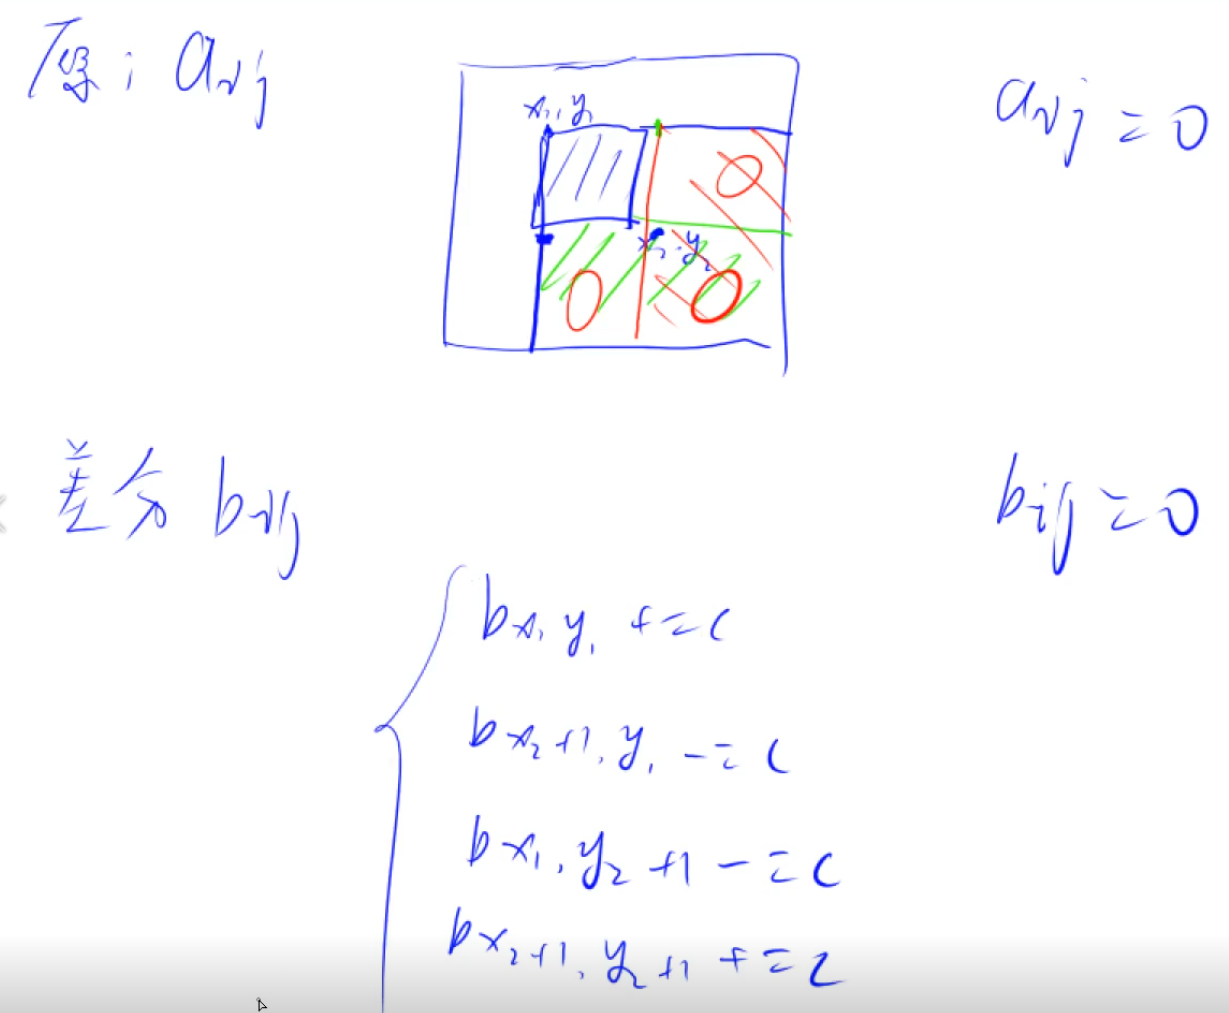 原: aij
x1, y1
aij = 0
0
x2, y2
0
0
差分 bij
bij = 0
bx1y1 += c
bx2+1, y1 -= c
bx1, y2+1 -= c
bx2+1, y2+1 += c